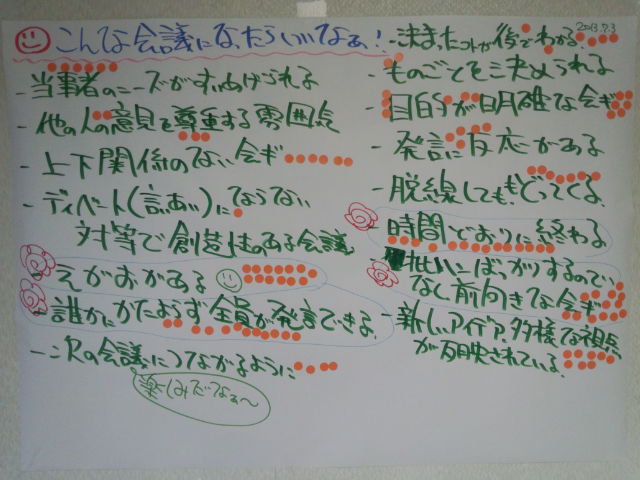 こんな会議になったらいいなぁ!
2013.7.3
- 当事者のニーズがすいあげられる
- 他の人の意見を尊重する雰囲気
- 上下関係のない会ギ
- ディベート(言いあい)にならない
対等で創造性のある会議
- えがおがある
- 誰かにかたよらず全員が発言できる
- 次の会議につながるように
楽しみだなぁ〜
- 決まったコトが後でわかる
- ものごとを決められる
- 目的が明確な会ギ
- 発言に反応がある
- 脱線してももどってくる
- 時間どおりに終わる
- 批ハンばっかりするのでは
なく前向きな会ギ
- 新しいアイデア、多様な視点
が反映されている。